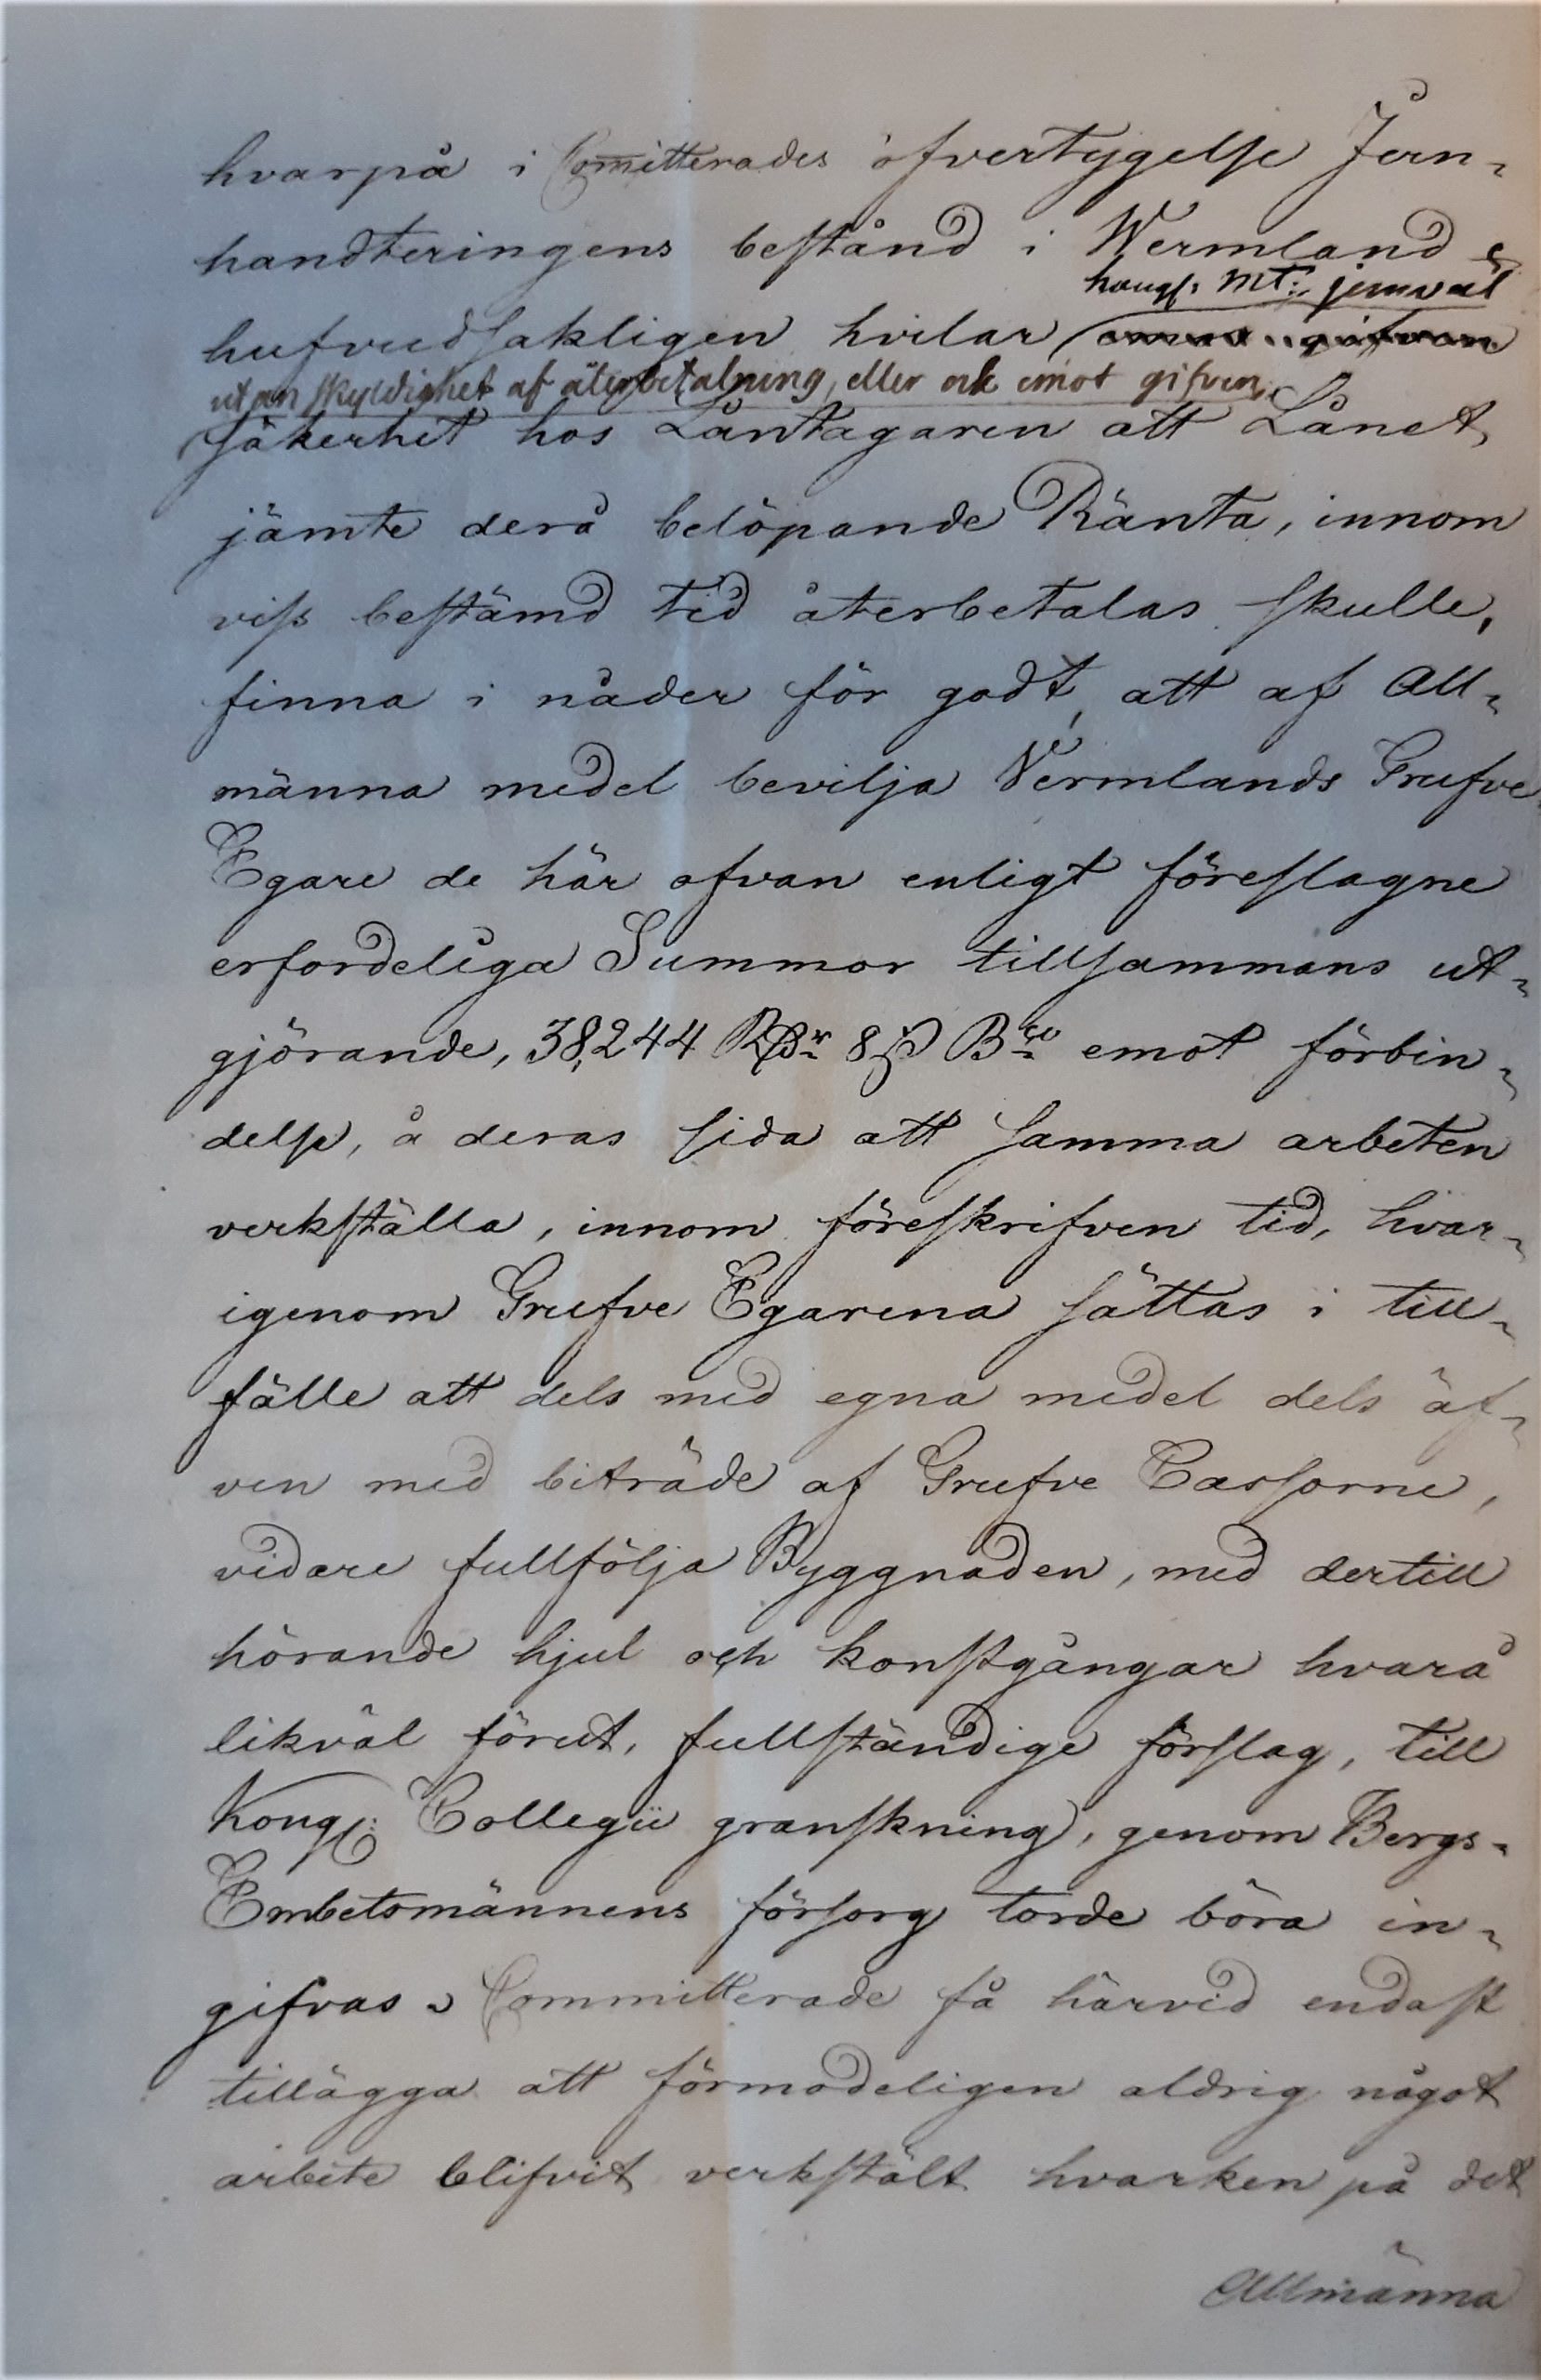 hvarpå i Com̅itterades öfvertygelse Jern-
handteringens bestånd i Wermland
kongl: Mt: jemväl
hufvudsakligen hvilar emot gifven
utan skyldighet af återbetalning, eller ock emot gifven
säkerhet hos Låntagaren att Lånet
jämte derå belöpande Ränta, innom
viss bestämd tid återbetalas skulle,
finna i nåder för godt, att af All-
männa medel bevilja Vermlands Grufve
Egare de här ofvan enligt föreslagne
erfordeliga Summor tillsammans ut-
gjörande, 38,244 RDr 8 ß Bco emot förbin-
delse, å deras sida att samma arbeten
verkställa, innom föreskrifven tid, hvar-
igenom Grufve Egarena sättas i till-
fälle att dels med egna medel dels äf-
ven med biträde af Grufve Cassorne,
vidare fullfölja Byggnaden, med dertill
hörande hjul och konstgångar hvarå
likväl förut, fullständige förslag, till
Kongl: Collegii granskning, genom Bergs-
Embetsmännens försorg torde böra in-
gifvas. Committerade få härvid endast
tillägga att förmodeligen aldrig något
arbete blifvit verkstält hvarken på det
Allmänna